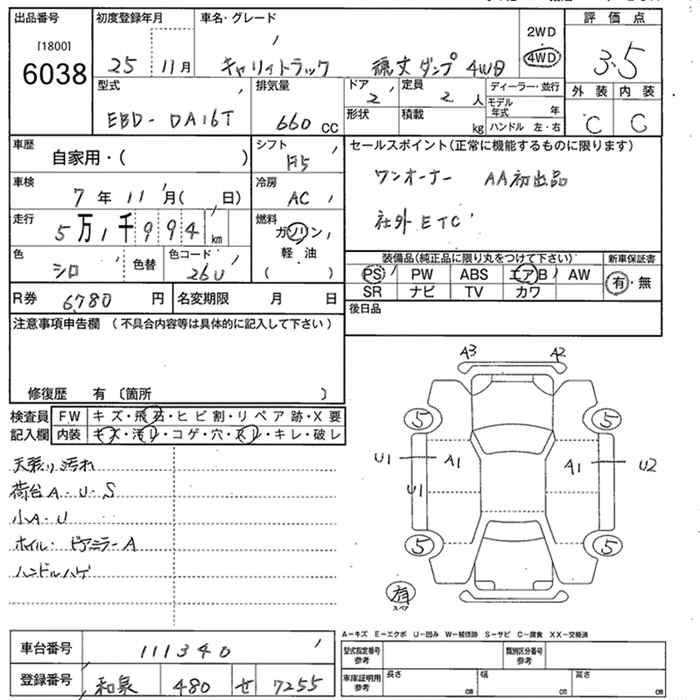 出品番号 初度登録年月 車名・グレード 2WD 4WD 評価点
[1800]
6038 25 11月 キャリィトラック 積文ダンプ 4WD 3.5
型式 排気量 ドア 2 定員 2 人 ディーラー・並行 外装 内装
モデル年式 年
EBD-DA16T 660 cc 形状 積載 kg ハンドル 左・右 C C
車歴 自家用・( ) シフト F5 セールスポイント(正常に機能するものに限ります)
車検 7年11月( 日) 冷房 AC ワンオーナー AA初出品
走行 5万1千994km 燃料 ガソリン 社外ETC
軽油
( )
色 シロ 色替 色コード 26U 装備品(純正品に限り丸をつけて下さい) 新車保証書
PS PW ABS エアB AW 有・無
R券 6780 円 名変期限 月 日 SR ナビ TV カワ
注意事項申告欄 (不具合内容等は具体的に記入して下さい) 後日品
修復歴 有 〔箇所 〕
検査員 FW キズ・飛石・ヒビ割・リペア跡・X要
記入欄 内装 キズ・汚レ・コゲ・穴・スレ・キレ・破レ
天張り汚れ
荷台A・U・S
小A・U
ホイル・ピアミラーA
ハンドルハゲ
A3 A2
5 5
U1 A1 A1 U2
U1
5 5
有
スペア
A-キズ E-エクボ U-凹み W-補修跡 S-サビ C-腐食 XX-交換済
車台番号 111340 型式指定番号 参考 類別区分番号 参考
登録番号 和泉 480 せ 7255 車庫証明用 参考 長さ cm 幅 cm 高さ cm